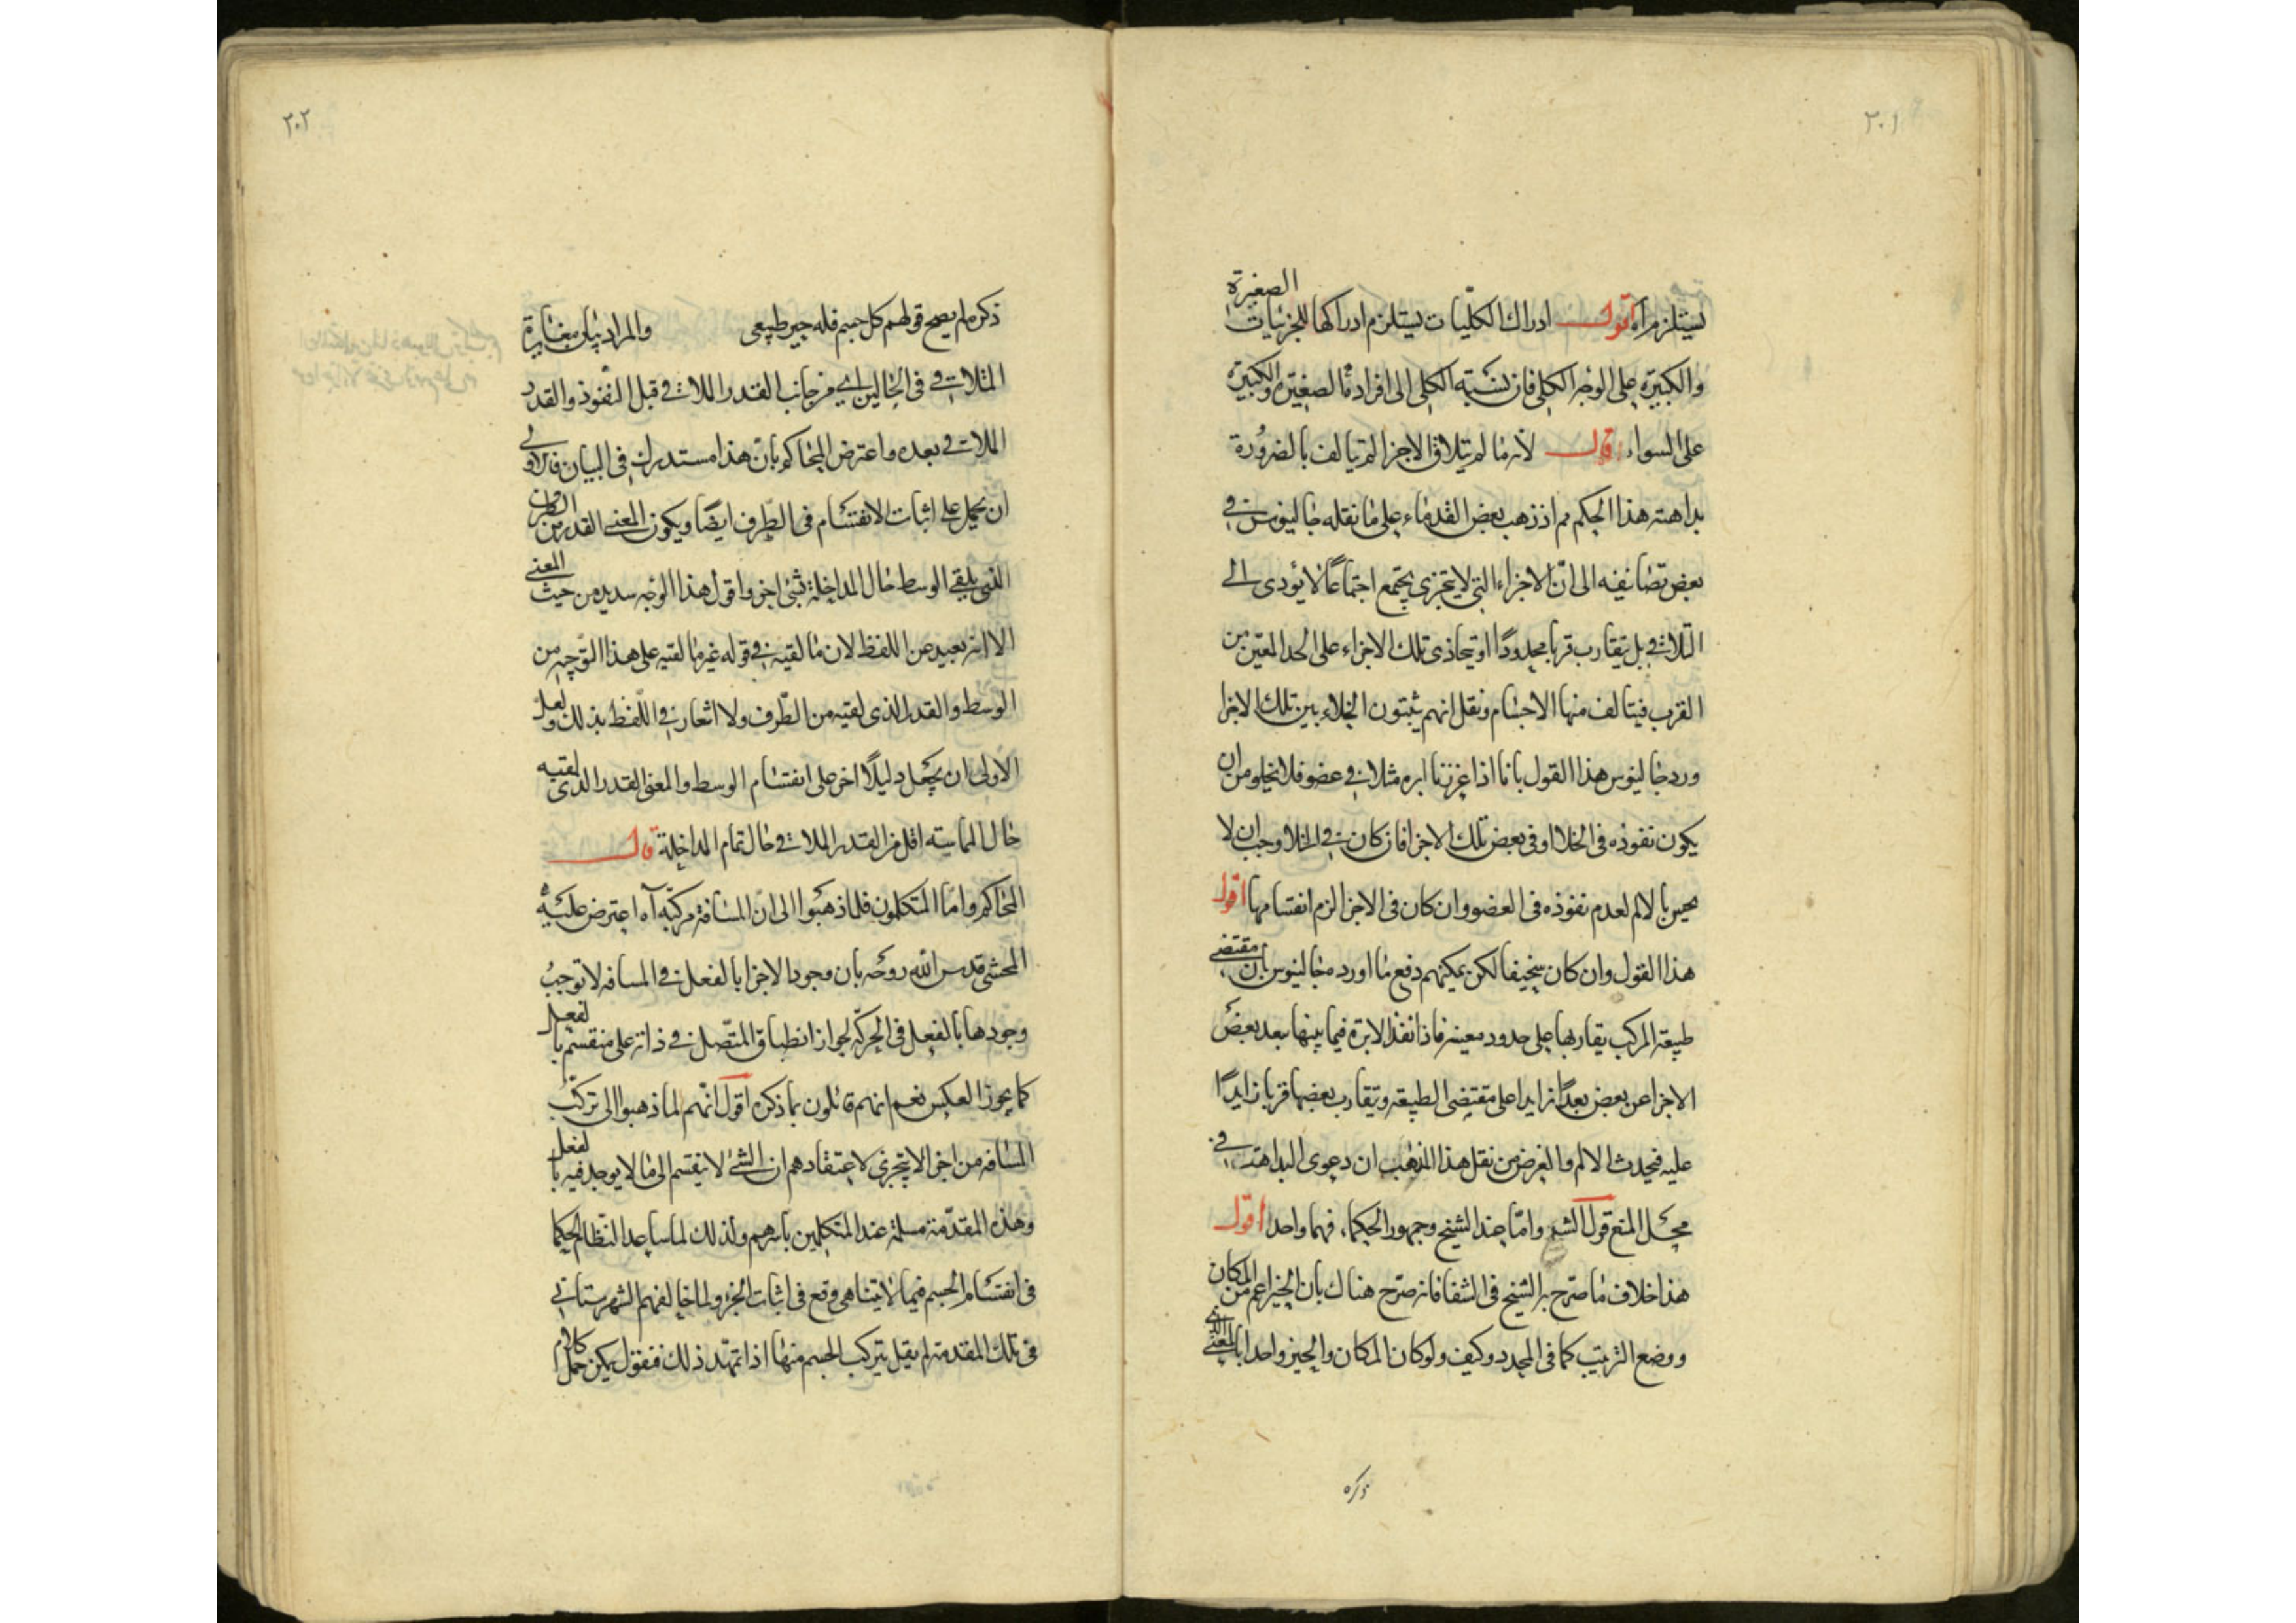 ٢٠١
يستلزم اه اقول ادراك الكلّيات يستلزم ادراكها للجزئيات الصغيرة
والكبيرة على الوجه الكلى فان نسبته الكلى الى افراده الصغيرة والكبيرة
على السواء قال لانه ما لم يتلاق الاجزا لم يتالف بالضرورة
بداهته هذا الحكم مم اذ ذهب بعض القدماء على ما نقله جالينوس فى
بعض تصانيفه الى انّ الاجزاء التى لا يتجزى يجتمع اجتماعًا لا يؤدى الى
التلاقى بل يتقارب قربا محدودًا او يتحاذى تلك الاجزاء على الحد المعين من
القرب فيتالف منها الاجسام ونقل انهم يثبتون الخلاء بين تلك الاجزا
ورد جالينوس هذا القول بانا اذا غرزنا ابره مثلا فى عضو فلا يخلو من ان
يكون نفوذه فى الخلا او فى بعض تلك الاجزا فان كان فى الخلا وجب ان لا
يحس بالالم لعدم نفوذه فى العضو وان كان فى الاجزا لزم انقسامها اقول
هذا القول وان كان سخيفا لكن يمكنهم دفع ما اورده جالينوس بان مقتضى
طبيعة المركب تقاربها على حدود معينه فاذا نفذ الابرة فيما بينها بعد بعض
الاجزا عن بعض بعدًا زايدا على مقتضى الطبيعة وتقارب بعضها قربا زايدًا
عليه فيحدث الالم والغرض من نقل هذا المذهب ان دعوى البداهة فى
محل المنع قول الش وامّا عند الشيخ وجمهور الحكما، فهما واحد اقول
هذا خلاف ما صرّح به الشيخ فى الشفا فانه صرّح هناك بان الحيز اعم من المكان
ووضع الترتيب كما فى المحدد وكيف ولو كان المكان والحيز واحدا بالمعنى الذى
ذكره
٢٠٢
ذكره لم يصح قولهم كل جسم فله حيز طبيعى والمراد بيان مغايرة
الملاقى فى الحالين اى من جانب القدر الملاقى قبل النفوذ والقدر
الملاقى بعده واعترض المحاكم بانّ هذا مستدرك فى البيان فالاولى
ان يحمل على اثبات الانقسام فى الطّرف ايضًا ويكون المعنى القدر من الطرف
الذى يلقى الوسط حال المداخلة شئ اخر واقول هذا الوجه سديد من حيث المعنى
الا انه بعيد عن اللفظ لان ما لقيه فى قوله غير ما لقيه على هذا التوجيه من
الوسط والقدر الذى لقيه من الطّرف ولا اشعار فى اللّفظ بذلك ولعل
الاولى ان يجعل دليلًا اخر على انقسام الوسط والمعنى القدر الذى لقيه
حال المماسة اقل من القدر الملاقى حال تمام المداخلة قال
المحاكم وامّا المتكلمون فلما ذهبوا الى انّ المسافة مركبّة آه اعترض عليه
المحشى قدس الله روحه بان وجود الاجزا بالفعل فى المسافه لا توجب
وجودها بالفعل فى الحركة لجواز انطباق المتّصل فى ذاته على منقسم بالفعل
كما يجوز العكس نعم انهم قائلون بما ذكره اقول انّهم لما ذهبوا الى تركّب
المسافه من اجزا لا يتجزى لاعتقادهم ان الشئ لا ينقسم الى ما لا يوجد فيه بالفعل
وهذه المقدّمة مسلمة عند المتكلمين باسرهم ولذلك لما ساعد النظّام الحكما
فى انقسام الجسم فيما لا يتناهى وقع فى اثبات الجزو ولما خالفهم الشهرستانى
فى تلك المقدمة لم يقل بتركب الجسم منها اذا تمهّد ذلك فنقول يمكن حمل كلام